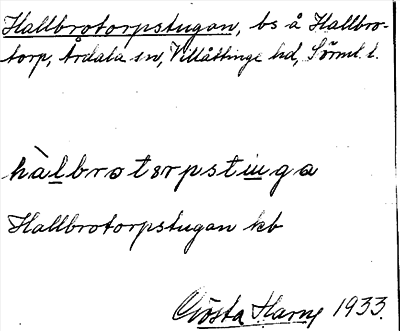 Hallbrotorpstugan, bs å Hallbro-
torp, Årdala sn, Villåttinge hd, Sörml. l.
hàlbrotørpstuga
Hallbrotorpstugan kb
Gösta Harng 1933.